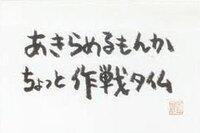 あきらめるもんか
ちょっと作戦タイム